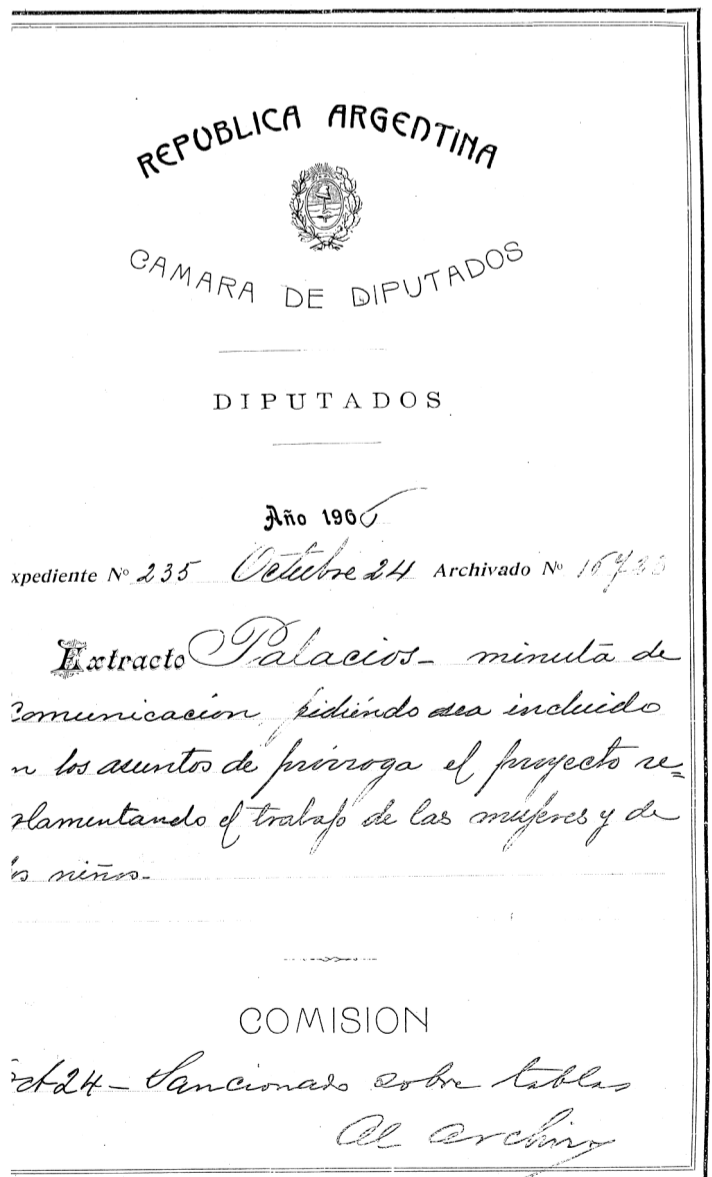 REPUBLICA ARGENTINA
CAMARA DE DIPUTADOS
DIPUTADOS
Año 1906
xpediente Nº 235 Octubre 24 Archivado Nº
Extracto Palacios - minuta de
comunicación pidiéndo sea incluido
n los asuntos de prórroga el proyecto re=
glamentando el trabajo de las mujeres y de
os niños.-
COMISION
Oct 24 - Sancionado sobre tablas
Al archivo